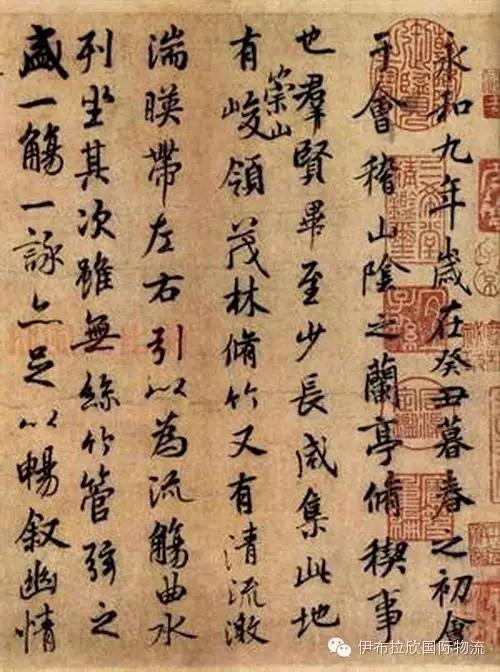 永和九年歲在癸丑暮春之初會
于會稽山陰之蘭亭脩稧事
也羣賢畢至少長咸集此地
有崇山峻領茂林脩竹又有清流激
湍暎帶左右引以為流觴曲水
列坐其次雖無絲竹管弦之
盛一觴一詠亦足以暢叙幽情
伊布拉欣国际物流